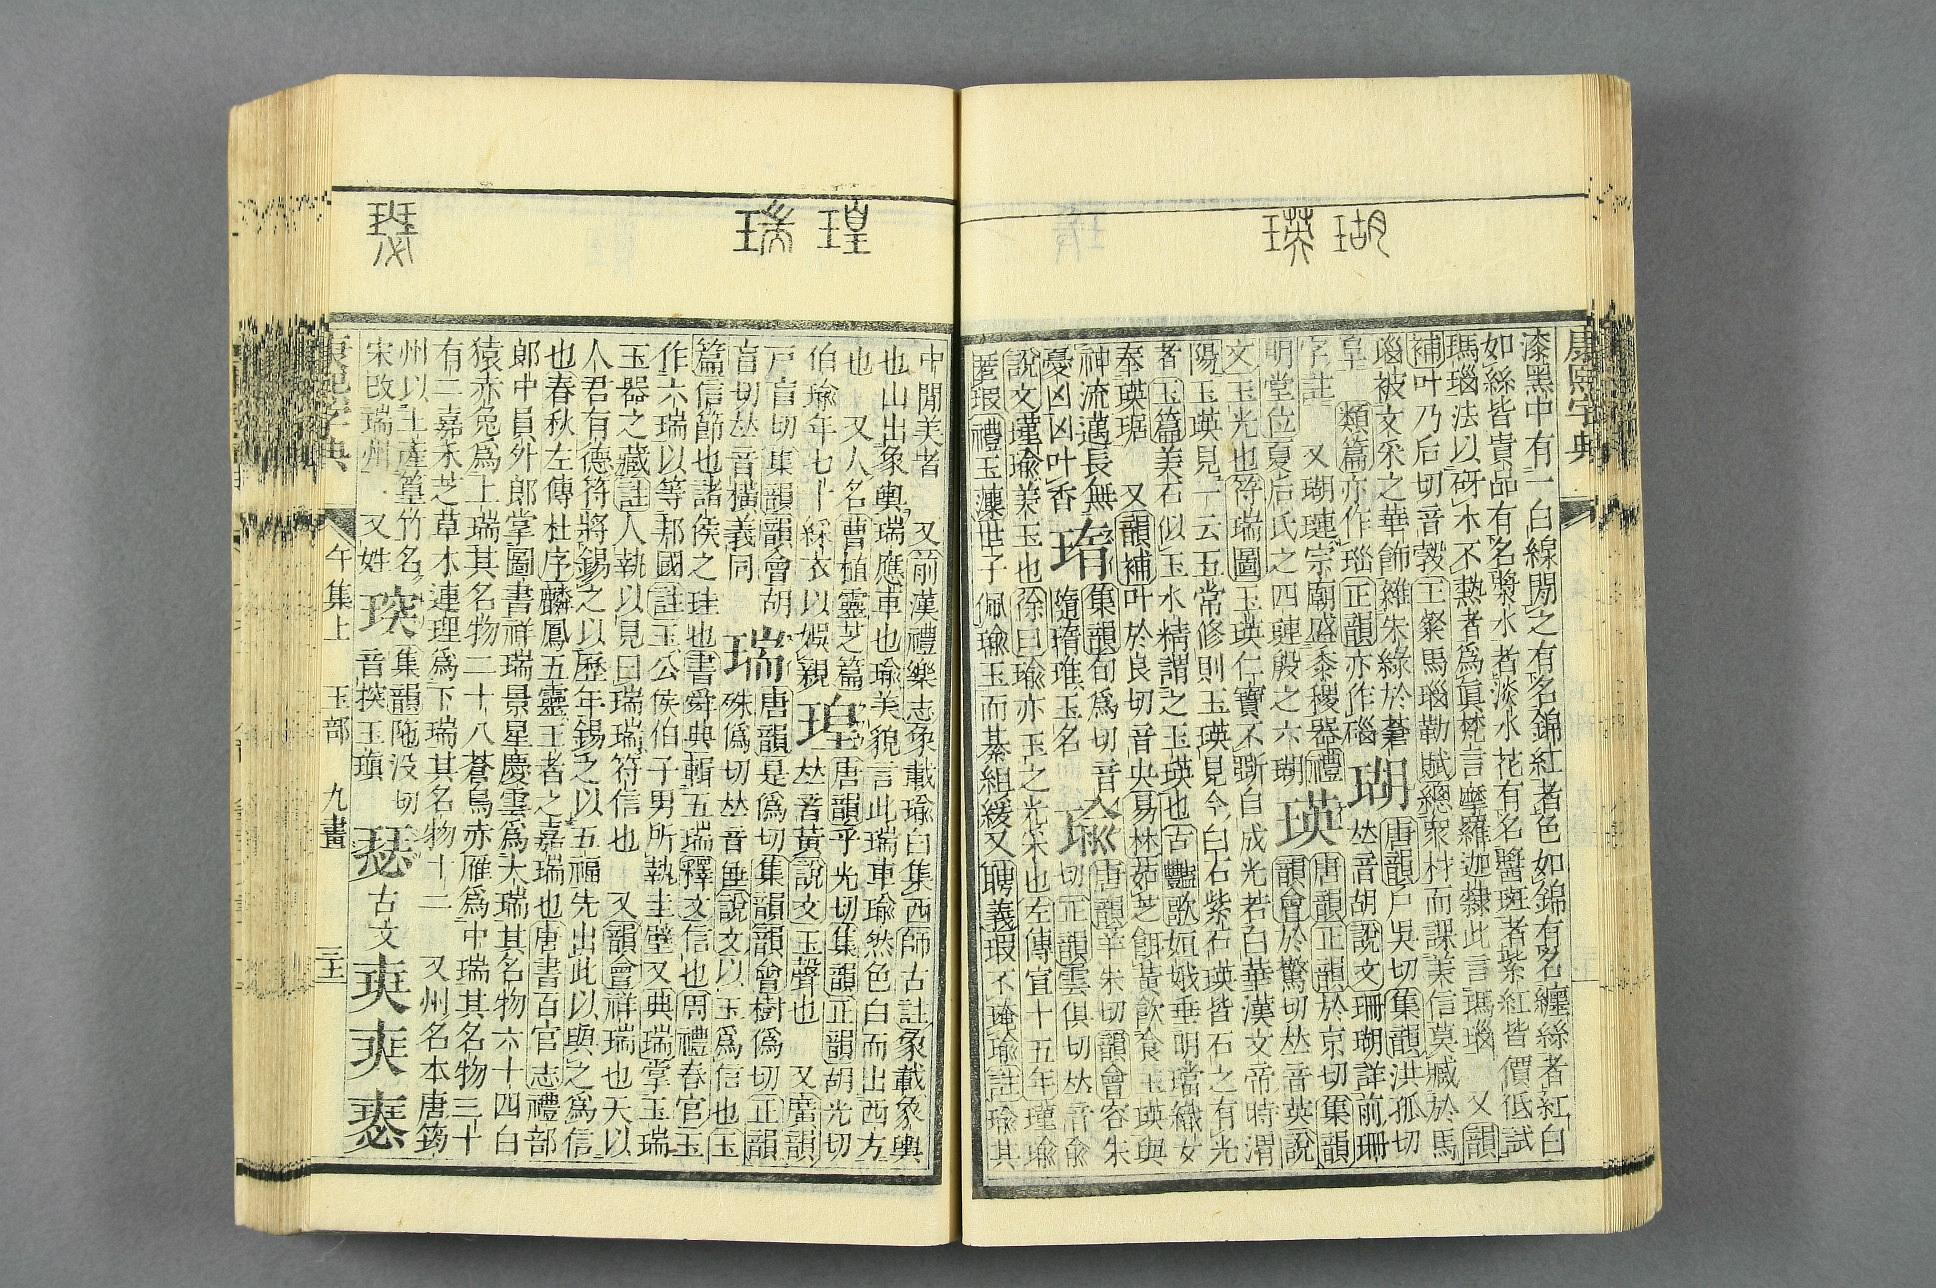 瑚瑛
康熙字典
漆黑中有一白線閒之有名錦紅者色如錦有名纏絲者紅白
如絲皆貴品有名漿水者淡水花有名醬斑者紫紅皆價低試
瑪瑙法以砑木不熱者爲眞梵言摩羅迦隸此言瑪瑙 又韻
補叶乃后切音㝅王粲馬瑙勒賦總衆材而課美信莫臧於馬
瑙被文采之華飾雜朱綠於蒼
皐 類篇亦作瑙正韻亦作碯
瑚
唐韻戸吳切集韻洪孤切
𠀤音胡說文珊瑚詳前珊
字註 又瑚璉宗廟盛黍稷器禮
明堂位夏后氏之四璉殷之六瑚
瑛
唐韻正韻於京切集韻
韻會於驚切𠀤音英說
文玉光也符瑞圖玉瑛仁寶不斲自成光若白華漢文帝時渭
陽玉瑛見一云五常修則玉瑛見今白石紫石瑛皆石之有光
者玉篇美石似玉水精謂之玉瑛也古豔歌姮娥垂明璫織女
奉瑛琚 又韻補叶於良切音央易林茹芝餌黃飮食玉瑛與
神流通長無
憂凶凶叶香
瑃
集韻旬爲切音
隨㻟琟玉名
瑜
唐韻羊朱切韻會容朱
切正韻雲俱切𠀤音俞
說文瑾瑜美玉也徐曰瑜亦玉之光采也左傳宣十五年瑾瑜
匿瑕禮玉藻世子佩瑜玉而綦組綬又聘義瑕不掩瑜註瑜其
瑝瑞瑟
中閒美者 又前漢禮樂志象載瑜白集西師古註象載象輿
也山出象輿瑞應車也瑜美貌言此瑞車瑜然色白而出西方
也 又人名曹植靈芝篇
伯瑜年七十綵衣以娛親
瑝
唐韻乎光切集韻正韻胡光切
𠀤音黃說文玉聲也 又廣韻
戸盲切集韻韻會胡
盲切𠀤音橫義同
瑞
唐韻是僞切集韻韻會樹僞切正韻
殊僞切𠀤音睡說文以玉爲信也玉
篇信節也諸侯之珪也書舜典輯五瑞釋文信也周禮春官玉
作六瑞以等邦國註王公侯伯子男所執圭璧又典瑞掌玉瑞
玉器之藏註人執以見曰瑞瑞符信也 又韻會祥瑞也天以
人君有德符將錫之以歷年錫之以五福先出此以與之爲信
也春秋左傳杜序麟鳳五靈王者之嘉瑞也唐書百官志禮部
郞中員外郞掌圖書祥瑞景星慶雲爲大瑞其名物六十四白
猿赤兔爲上瑞其名物二十八蒼烏赤雁爲中瑞其名物三十
有二嘉禾芝草木連理爲下瑞其名物十二 又州名本唐筠
州以土產篁竹名
宋改瑞州 又姓
㻠
集韻陁没切
音揬玉瓆
瑟
古文
康熙字典 午集上 玉部 九畫